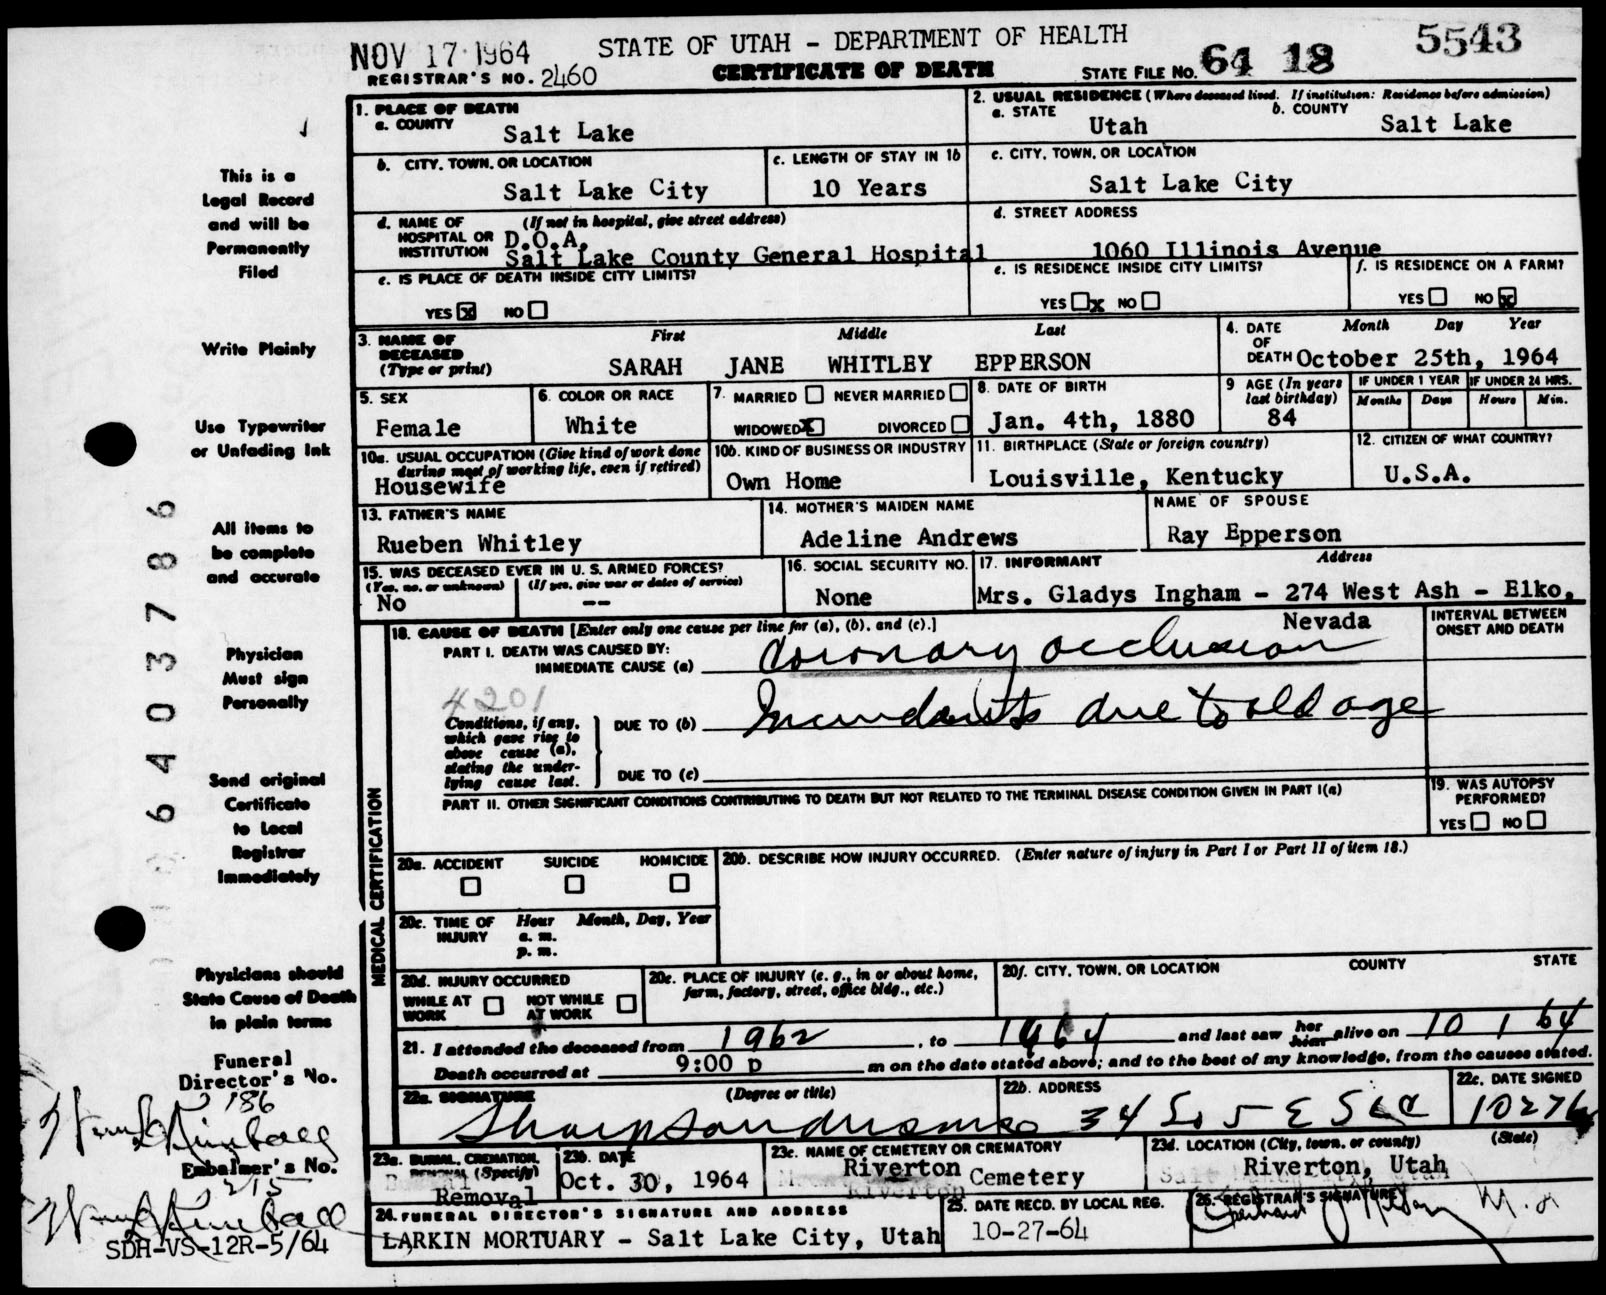 NOV 17 1964
STATE OF UTAH - DEPARTMENT OF HEALTH
5543
REGISTRAR'S NO. 2460
CERTIFICATE OF DEATH
STATE FILE NO. 64 18
This is a
Legal Record
and will be
Permanently
Filed
Write Plainly
Use Typewriter
or Unfading Ink
All items to
be complete
and accurate
Physician
Must sign
Personally
Send original
Certificate
to Local
Registrar
Immediately
Physicians should
State Cause of Death
in plain terms
Funeral
Director's No.
186
Embalmer's No.
215
SDH-VS-12R-5/64
6403786
1. PLACE OF DEATH
a. COUNTY
Salt Lake
2. USUAL RESIDENCE (Where deceased lived. If institution: Residence before admission)
a. STATE
Utah
b. COUNTY
Salt Lake
b. CITY, TOWN, OR LOCATION
Salt Lake City
c. LENGTH OF STAY IN 1b
10 Years
c. CITY, TOWN, OR LOCATION
Salt Lake City
d. NAME OF HOSPITAL OR INSTITUTION
(If not in hospital, give street address)
D.O.A.
Salt Lake County General Hospital
d. STREET ADDRESS
1060 Illinois Avenue
e. IS PLACE OF DEATH INSIDE CITY LIMITS?
YES x NO
e. IS RESIDENCE INSIDE CITY LIMITS?
YES x NO
f. IS RESIDENCE ON A FARM?
YES NO x
3. NAME OF DECEASED
(Type or print)
First Middle Last
SARAH JANE WHITLEY EPPERSON
4. DATE OF DEATH
Month Day Year
October 25th, 1964
5. SEX
Female
6. COLOR OR RACE
White
7. MARRIED NEVER MARRIED
WIDOWED x DIVORCED
8. DATE OF BIRTH
Jan. 4th, 1880
9 AGE (In years last birthday)
84
IF UNDER 1 YEAR
Months Days
IF UNDER 24 HRS.
Hours Min.
10a. USUAL OCCUPATION (Give kind of work done during most of working life, even if retired)
Housewife
10b. KIND OF BUSINESS OR INDUSTRY
Own Home
11. BIRTHPLACE (State or foreign country)
Louisville, Kentucky
12. CITIZEN OF WHAT COUNTRY?
U.S.A.
13. FATHER'S NAME
Rueben Whitley
14. MOTHER'S MAIDEN NAME
Adeline Andrews
NAME OF SPOUSE
Ray Epperson
15. WAS DECEASED EVER IN U. S. ARMED FORCES?
(Yes, no, or unknown) (If yes, give war or dates of service)
No --
16. SOCIAL SECURITY NO.
None
17. INFORMANT Address
Mrs. Gladys Ingham - 274 West Ash - Elko,
Nevada
MEDICAL CERTIFICATION
18. CAUSE OF DEATH [Enter only one cause per line for (a), (b), and (c).]
PART I. DEATH WAS CAUSED BY:
IMMEDIATE CAUSE (a) Coronary occlusion
4201
Conditions, if any, which gave rise to above cause (a), stating the underlying cause last.
DUE TO (b) due to old age
DUE TO (c)
INTERVAL BETWEEN ONSET AND DEATH
PART II. OTHER SIGNIFICANT CONDITIONS CONTRIBUTING TO DEATH BUT NOT RELATED TO THE TERMINAL DISEASE CONDITION GIVEN IN PART I(a)
19. WAS AUTOPSY PERFORMED?
YES NO
20a. ACCIDENT SUICIDE HOMICIDE
20b. DESCRIBE HOW INJURY OCCURRED. (Enter nature of injury in Part I or Part II of item 18.)
20c. TIME OF INJURY
Hour Month, Day, Year
a. m.
p. m.
20d. INJURY OCCURRED
WHILE AT WORK NOT WHILE AT WORK
20e. PLACE OF INJURY (e. g., in or about home, farm, factory, street, office bldg., etc.)
20f. CITY, TOWN, OR LOCATION COUNTY STATE
21. I attended the deceased from 1962, to 1964 and last saw her him alive on 10 1 64
Death occurred at 9:00 p m on the date stated above; and to the best of my knowledge, from the causes stated.
22a. SIGNATURE (Degree or title)
22b. ADDRESS
34 So 5 E SLC
22c. DATE SIGNED
10 27 64
23a. BURIAL, CREMATION, REMOVAL (Specify)
Removal
23b. DATE
Oct. 30, 1964
23c. NAME OF CEMETERY OR CREMATORY
Riverton Cemetery
23d. LOCATION (City, town, or county) (State)
Riverton, Utah
24. FUNERAL DIRECTOR'S SIGNATURE AND ADDRESS
LARKIN MORTUARY - Salt Lake City, Utah
25. DATE RECD. BY LOCAL REG.
10-27-64
26. REGISTRAR'S SIGNATURE